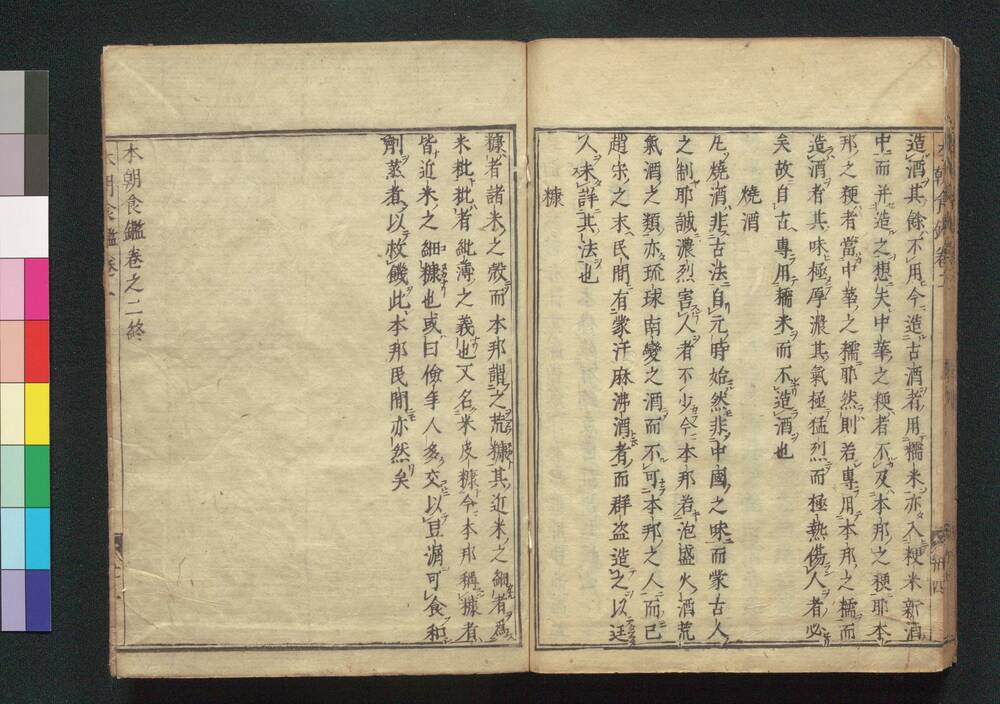 造酒其餘不用今造古酒者用糯米亦入粳米新酒
中而并造之想夫中華之粳者不及本邦之粳耶本
邦之粳者當中華之糯耶然則若專用本邦之糯而
造酒者其味極厚濃其氣極猛烈而極熱傷人者必
矣故自古專用糯米而不造酒也
燒酒
凡燒酒非古法自元時始然非中國之味而蒙古人
之制耶誠濃烈害人者不少今本邦若泡盛火酒荒
氣酒之類亦琉球南蠻之酒而不可本邦之人而已
趙宋之末民間有蒙汗麻沸酒者而群盗造之以迋
人未詳其法也
糠
糠者諸米之殻而本邦謂之荒糠其近米之細者爲
米粃粃者紕薄之義也又名米皮糠今本邦稱糠者
皆近米之細糠也或曰儉年人多交以豆滓可食和
劑蒸煮以救饑此本邦民間亦然矣
本朝食鑑卷之二終